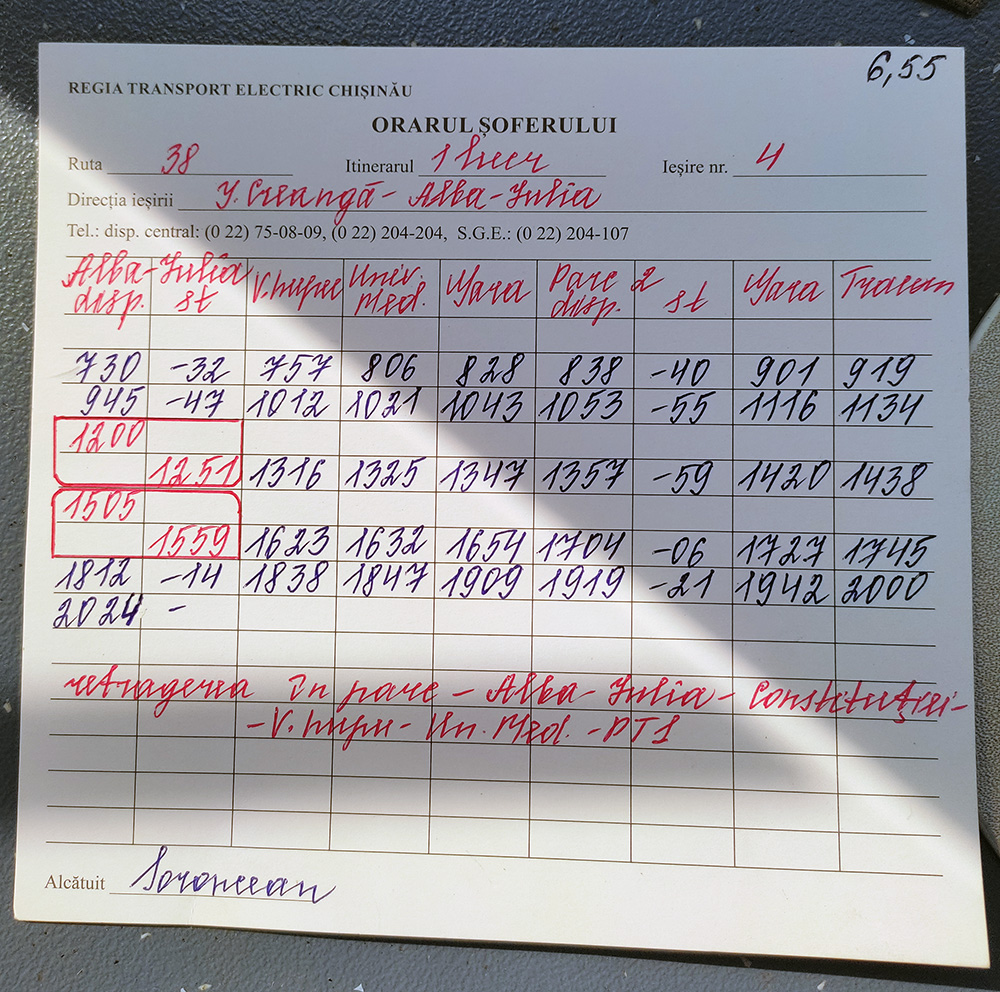 6,55
REGIA TRANSPORT ELECTRIC CHIȘINĂU
ORARUL ȘOFERULUI
Ruta 38 Itinerarul 1 Ieșire nr. 4
Direcția ieșirii I. Creangă - Alba-Iulia
Tel.: disp. central: (0 22) 75-08-09, (0 22) 204-204, S.G.E.: (0 22) 204-107
Alba-Iulia V. Lupu Univ. Gara Parc 2 Gara Tracum
disp. st Med. disp. st
730 -32 757 806 828 838 -40 901 919
945 -47 1012 1021 1043 1053 -55 1116 1134
1200
1251 1316 1325 1347 1357 -59 1420 1438
1505
1559 1623 1632 1654 1704 -06 1727 1745
1812 -14 1838 1847 1909 1919 -21 1942 2000
2024 -
retragerea în parc - Alba-Iulia - Constituției -
- V. Lupu - Un. Med. - PT1
Alcătuit